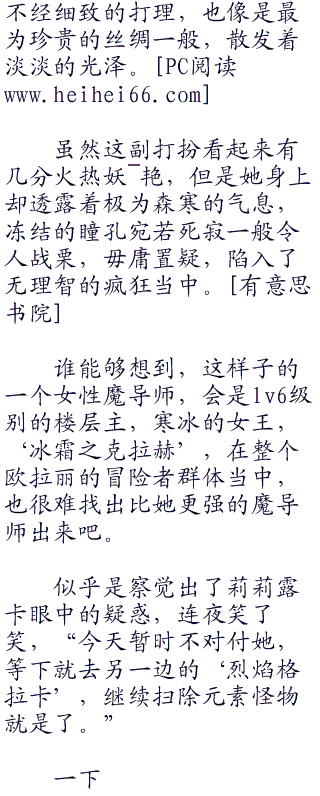 不经细致的打理，也像是最
为珍贵的丝绸一般，散发着
淡淡的光泽。[PC阅读
www.heihei66.com]
虽然这副打扮看起来有
几分火热妖¯艳，但是她身上
却透露着极为森寒的气息，
冻结的瞳孔宛若死寂一般令
人战栗，毋庸置疑，陷入了
无理智的疯狂当中。[有意思
书院]
谁能够想到，这样子的
一个女性魔导师，会是lv6级
别的楼层主，寒冰的女王，
‘冰霜之克拉赫’，在整个
欧拉丽的冒险者群体当中，
也很难找出比她更强的魔导
师出来吧。
似乎是察觉出了莉莉露
卡眼中的疑惑，连夜笑了
笑，“今天暂时不对付她，
等下就去另一边的‘烈焰格
拉卡’，继续扫除元素怪物
就是了。”
一下